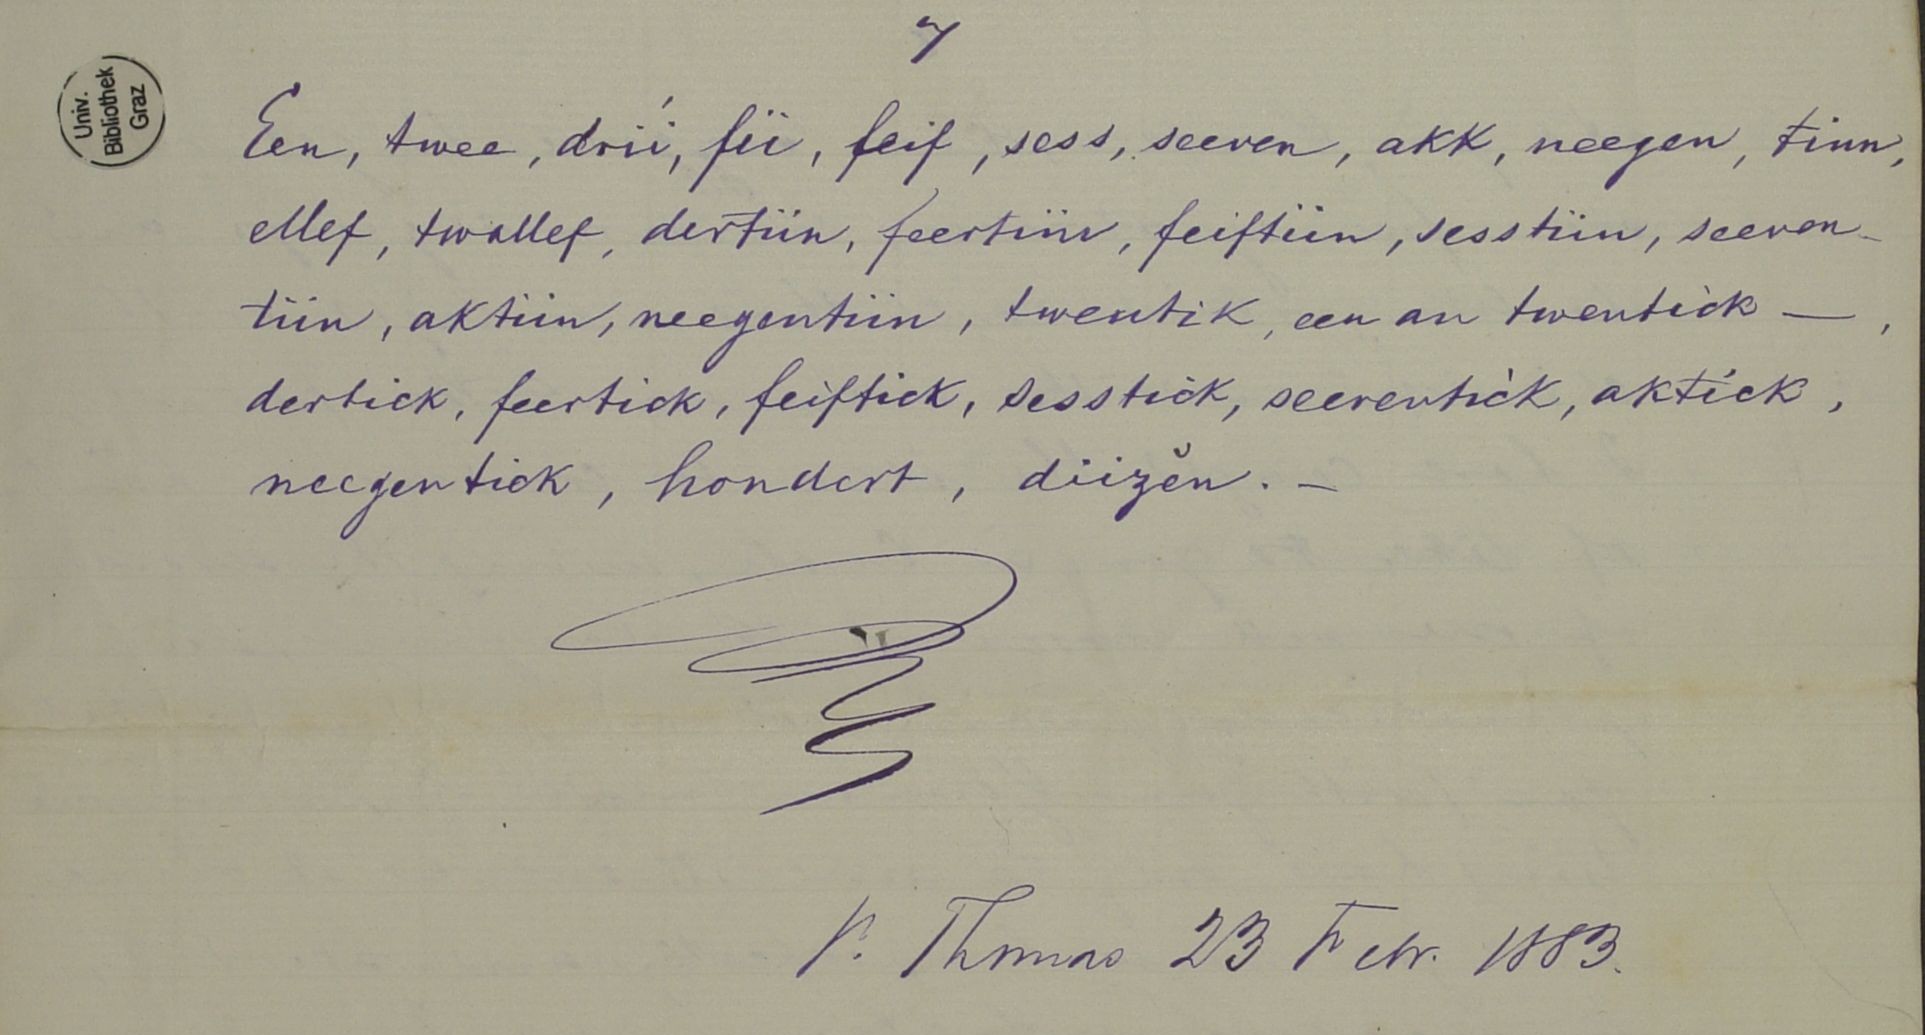 7
Univ.
Bibliothek
Graz
Een, twee, drií, fii, feif, sess, seeven, akk, neegen, tinn,
ellef, twallef, dertiin, feertiin, feiftiin, sesstiin, seeven-
tiin, aktiin, neegentiin, twentik, een an twentick —,
dertick, feertick, feiftick, sesstick, seeventick, aktick,
neegentick, hondert, diizĕn. —
St. Thomas 23 Febr. 1883.